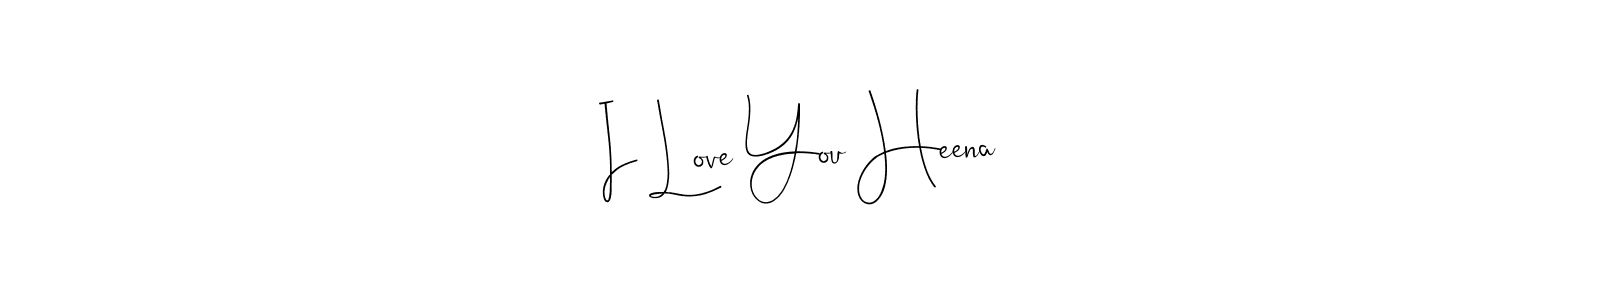 I Love You Heena